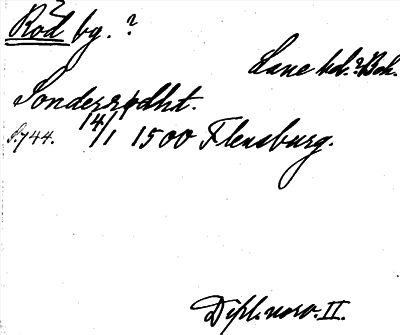 Rød by. ?
Lane hd. ? Bøh.
Sønderrødht.
S. 744. 14/1 1500 Flensburg.
Dipl. norv. II.